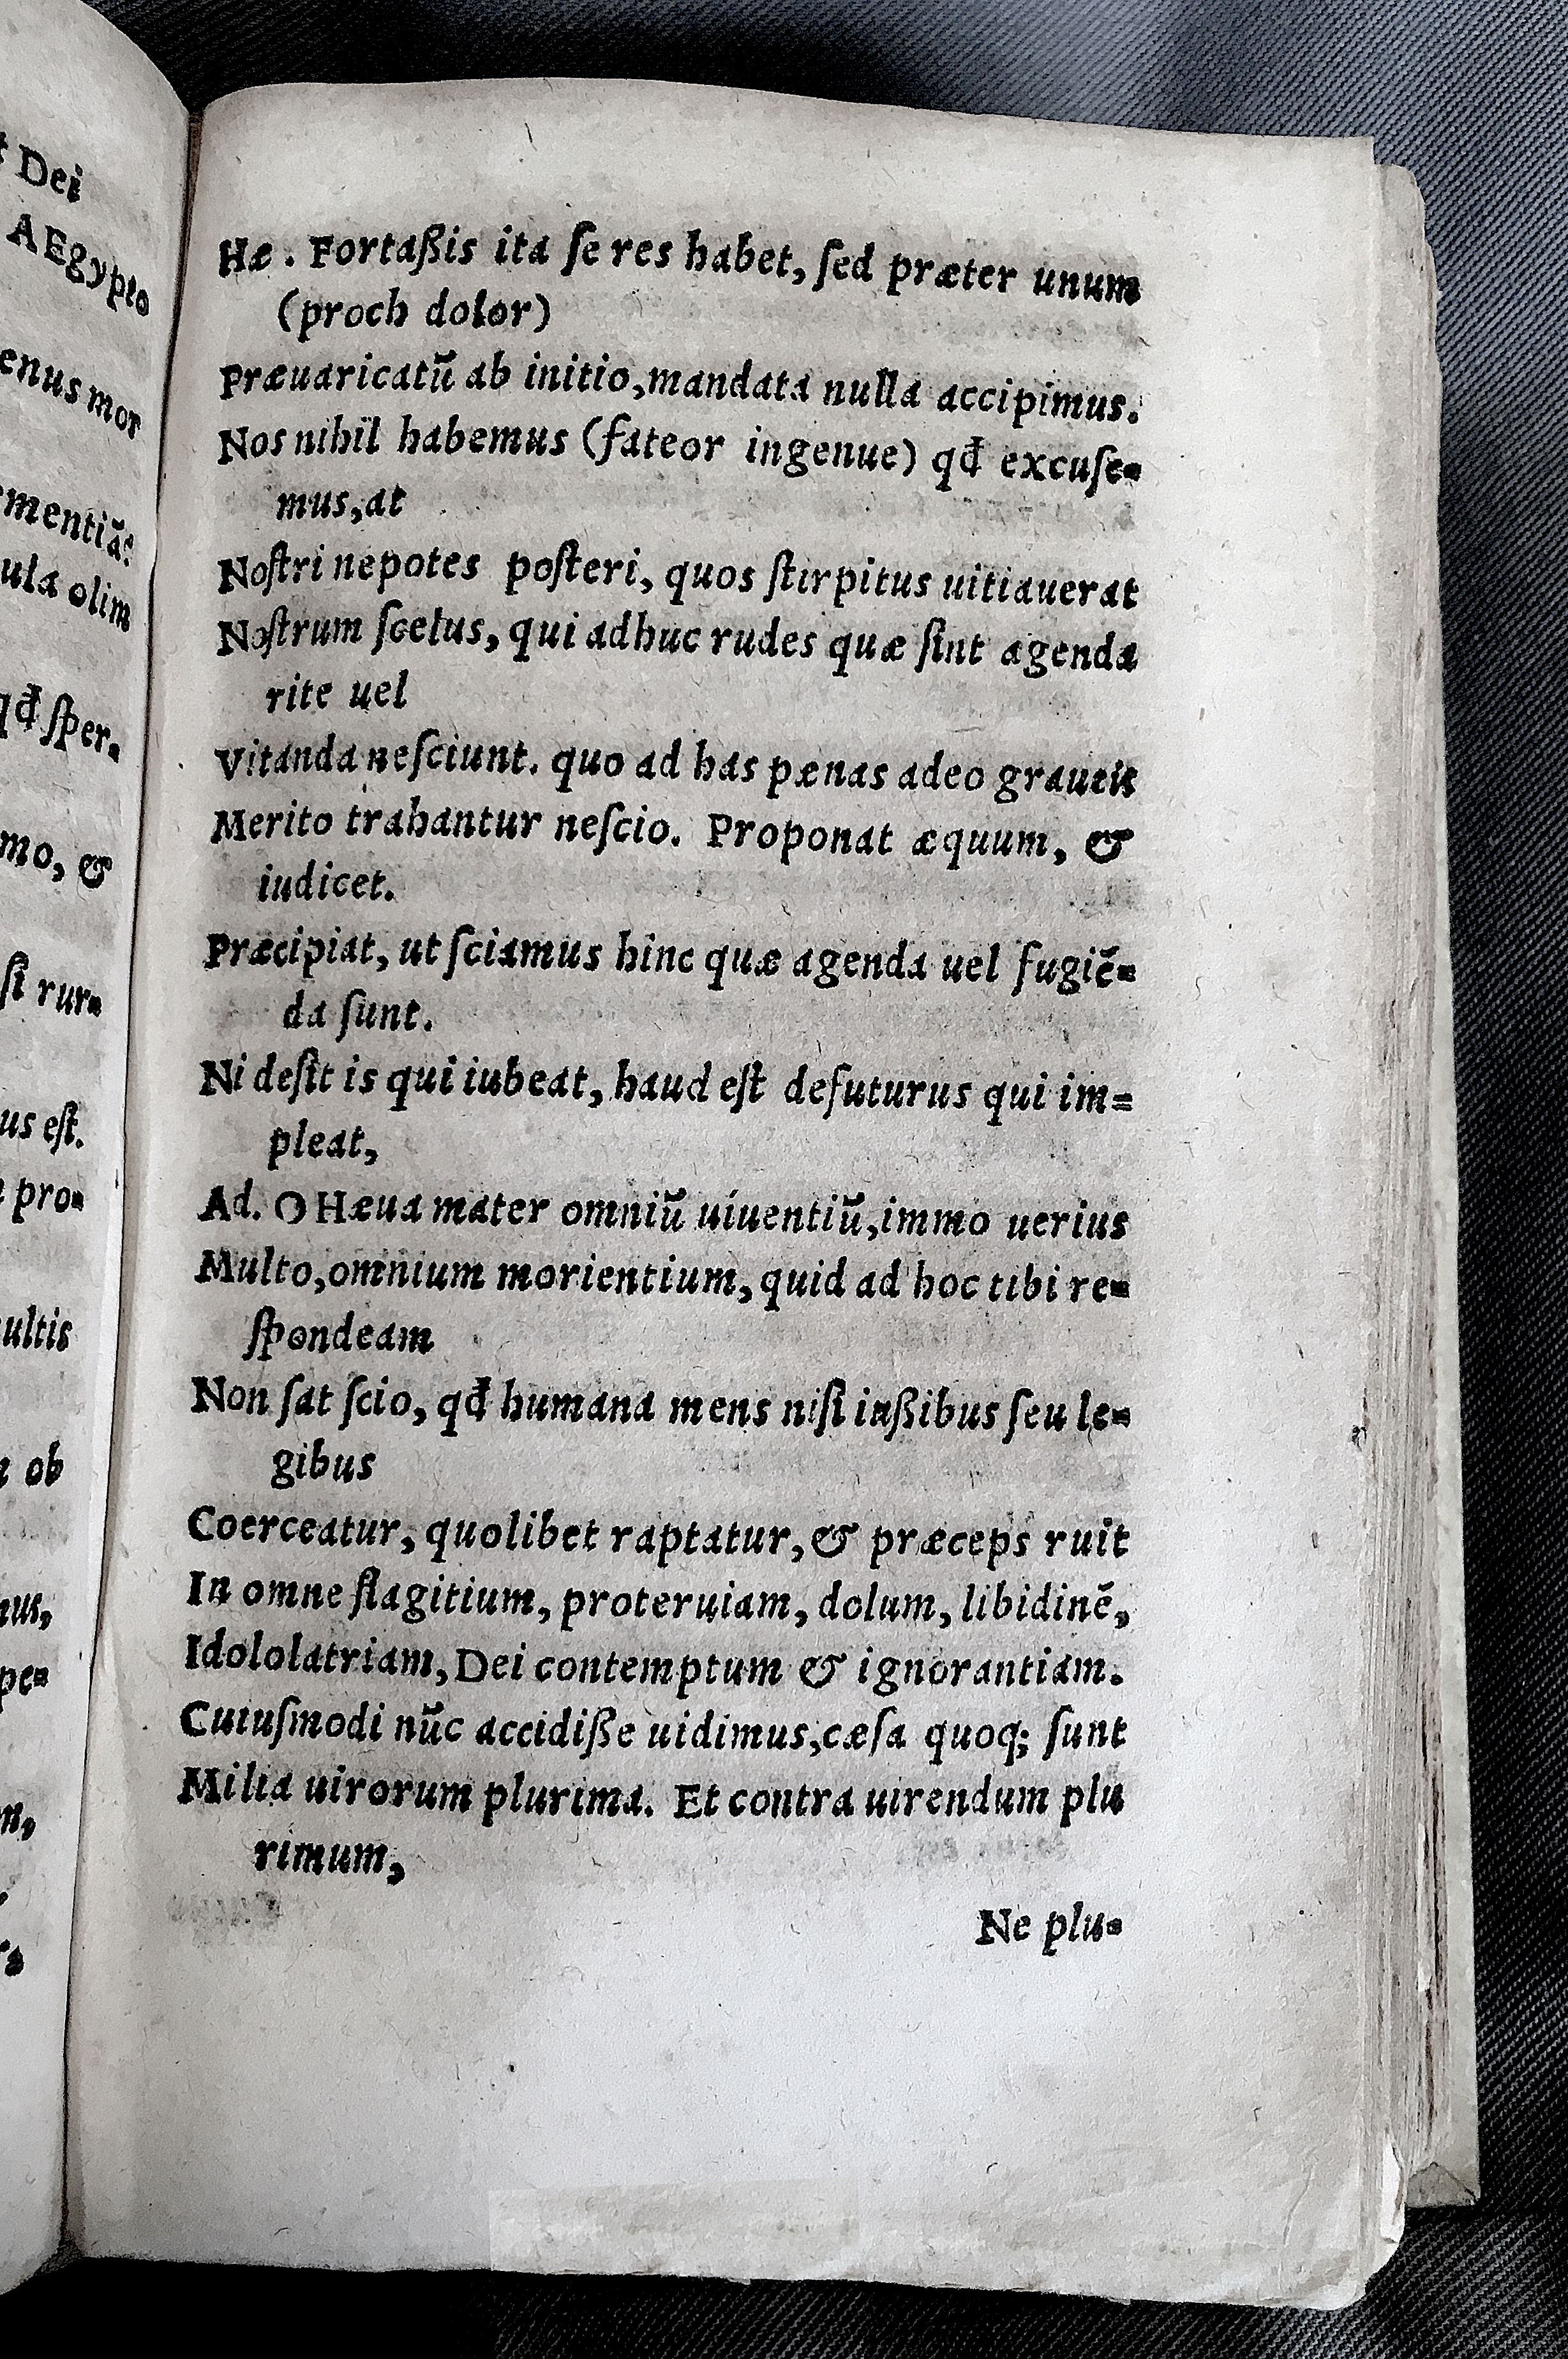 t Dei
AEgypto
enus mor
mentiā?
ula olim
qđ ſper-
mo, &
ſi rur-
us eſt.
pro-
ultis
ob
pe-
Hæ. Fortaßis ita ſe res habet, ſed præter unum
(proch dolor)
Præuaricatū ab initio, mandata nulla accipimus.
Nos nihil habemus (fateor ingenue) qđ excuſe-
mus, at
Noſtri nepotes poſteri, quos ſtirpitus uitiauerat
Noſtrum ſcelus, qui adhuc rudes quæ ſint agenda
rite uel
Vitanda neſciunt. quo ad has pænas adeo graueis
Merito trahantur neſcio. Proponat æquum, &
iudicet.
Præcipiat, ut ſciamus hinc quæ agenda uel fugiē-
da ſunt.
Ni deſit is qui iubeat, haud eſt defuturus qui im-
pleat,
Ad. O Hæua mater omniū uiuentiū, immo uerius
Multo, omnium morientium, quid ad hoc tibi re-
ſpondeam
Non ſat ſcio, qđ humana mens niſi iußibus ſeu le-
gibus
Coerceatur, quolibet raptatur, & præceps ruit
In omne flagitium, proteruiam, dolum, libidinē,
Idololatriam, Dei contemptum & ignorantiam.
Cuiuſmodi nūc accidiße uidimus, cæſa quoq; ſunt
Milia uirorum plurima. Et contra uirendum plu
rimum,
Ne plu-